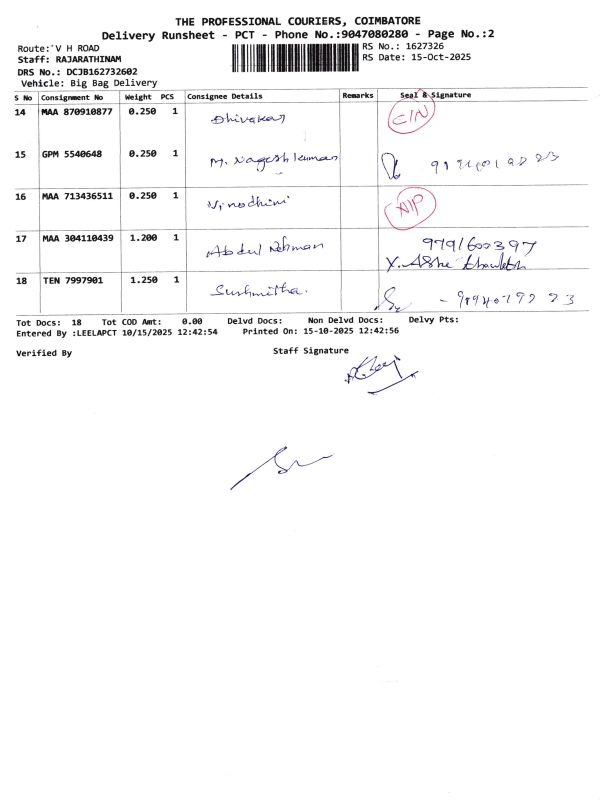 THE PROFESSIONAL COURIERS, COIMBATORE
Delivery Runsheet - PCT - Phone No.:9047080280 - Page No.:2
Route: V H ROAD
RS No.: 1627326
Staff: RAJARATHINAM
RS Date: 15-Oct-2025
DRS No.: DCJB162732602
Vehicle: Big Bag Delivery
S No Consignment No Weight PCS Consignee Details Remarks Seal & Signature
14 MAA 870910877 0.250 1 Dhivakar C/N
15 GPM 5540648 0.250 1 M. Nageshkumar
16 MAA 713436511 0.250 1 Vinodhini N/P
17 MAA 304110439 1.200 1 Abdul Rehman 9791600397
18 TEN 7997901 1.250 1 Sushmitha.
Tot Docs: 18 Tot COD Amt: 0.00 Delvd Docs: Non Delvd Docs: Delvy Pts:
Entered By :LEELAPCT 10/15/2025 12:42:54 Printed On: 15-10-2025 12:42:56
Verified By Staff Signature